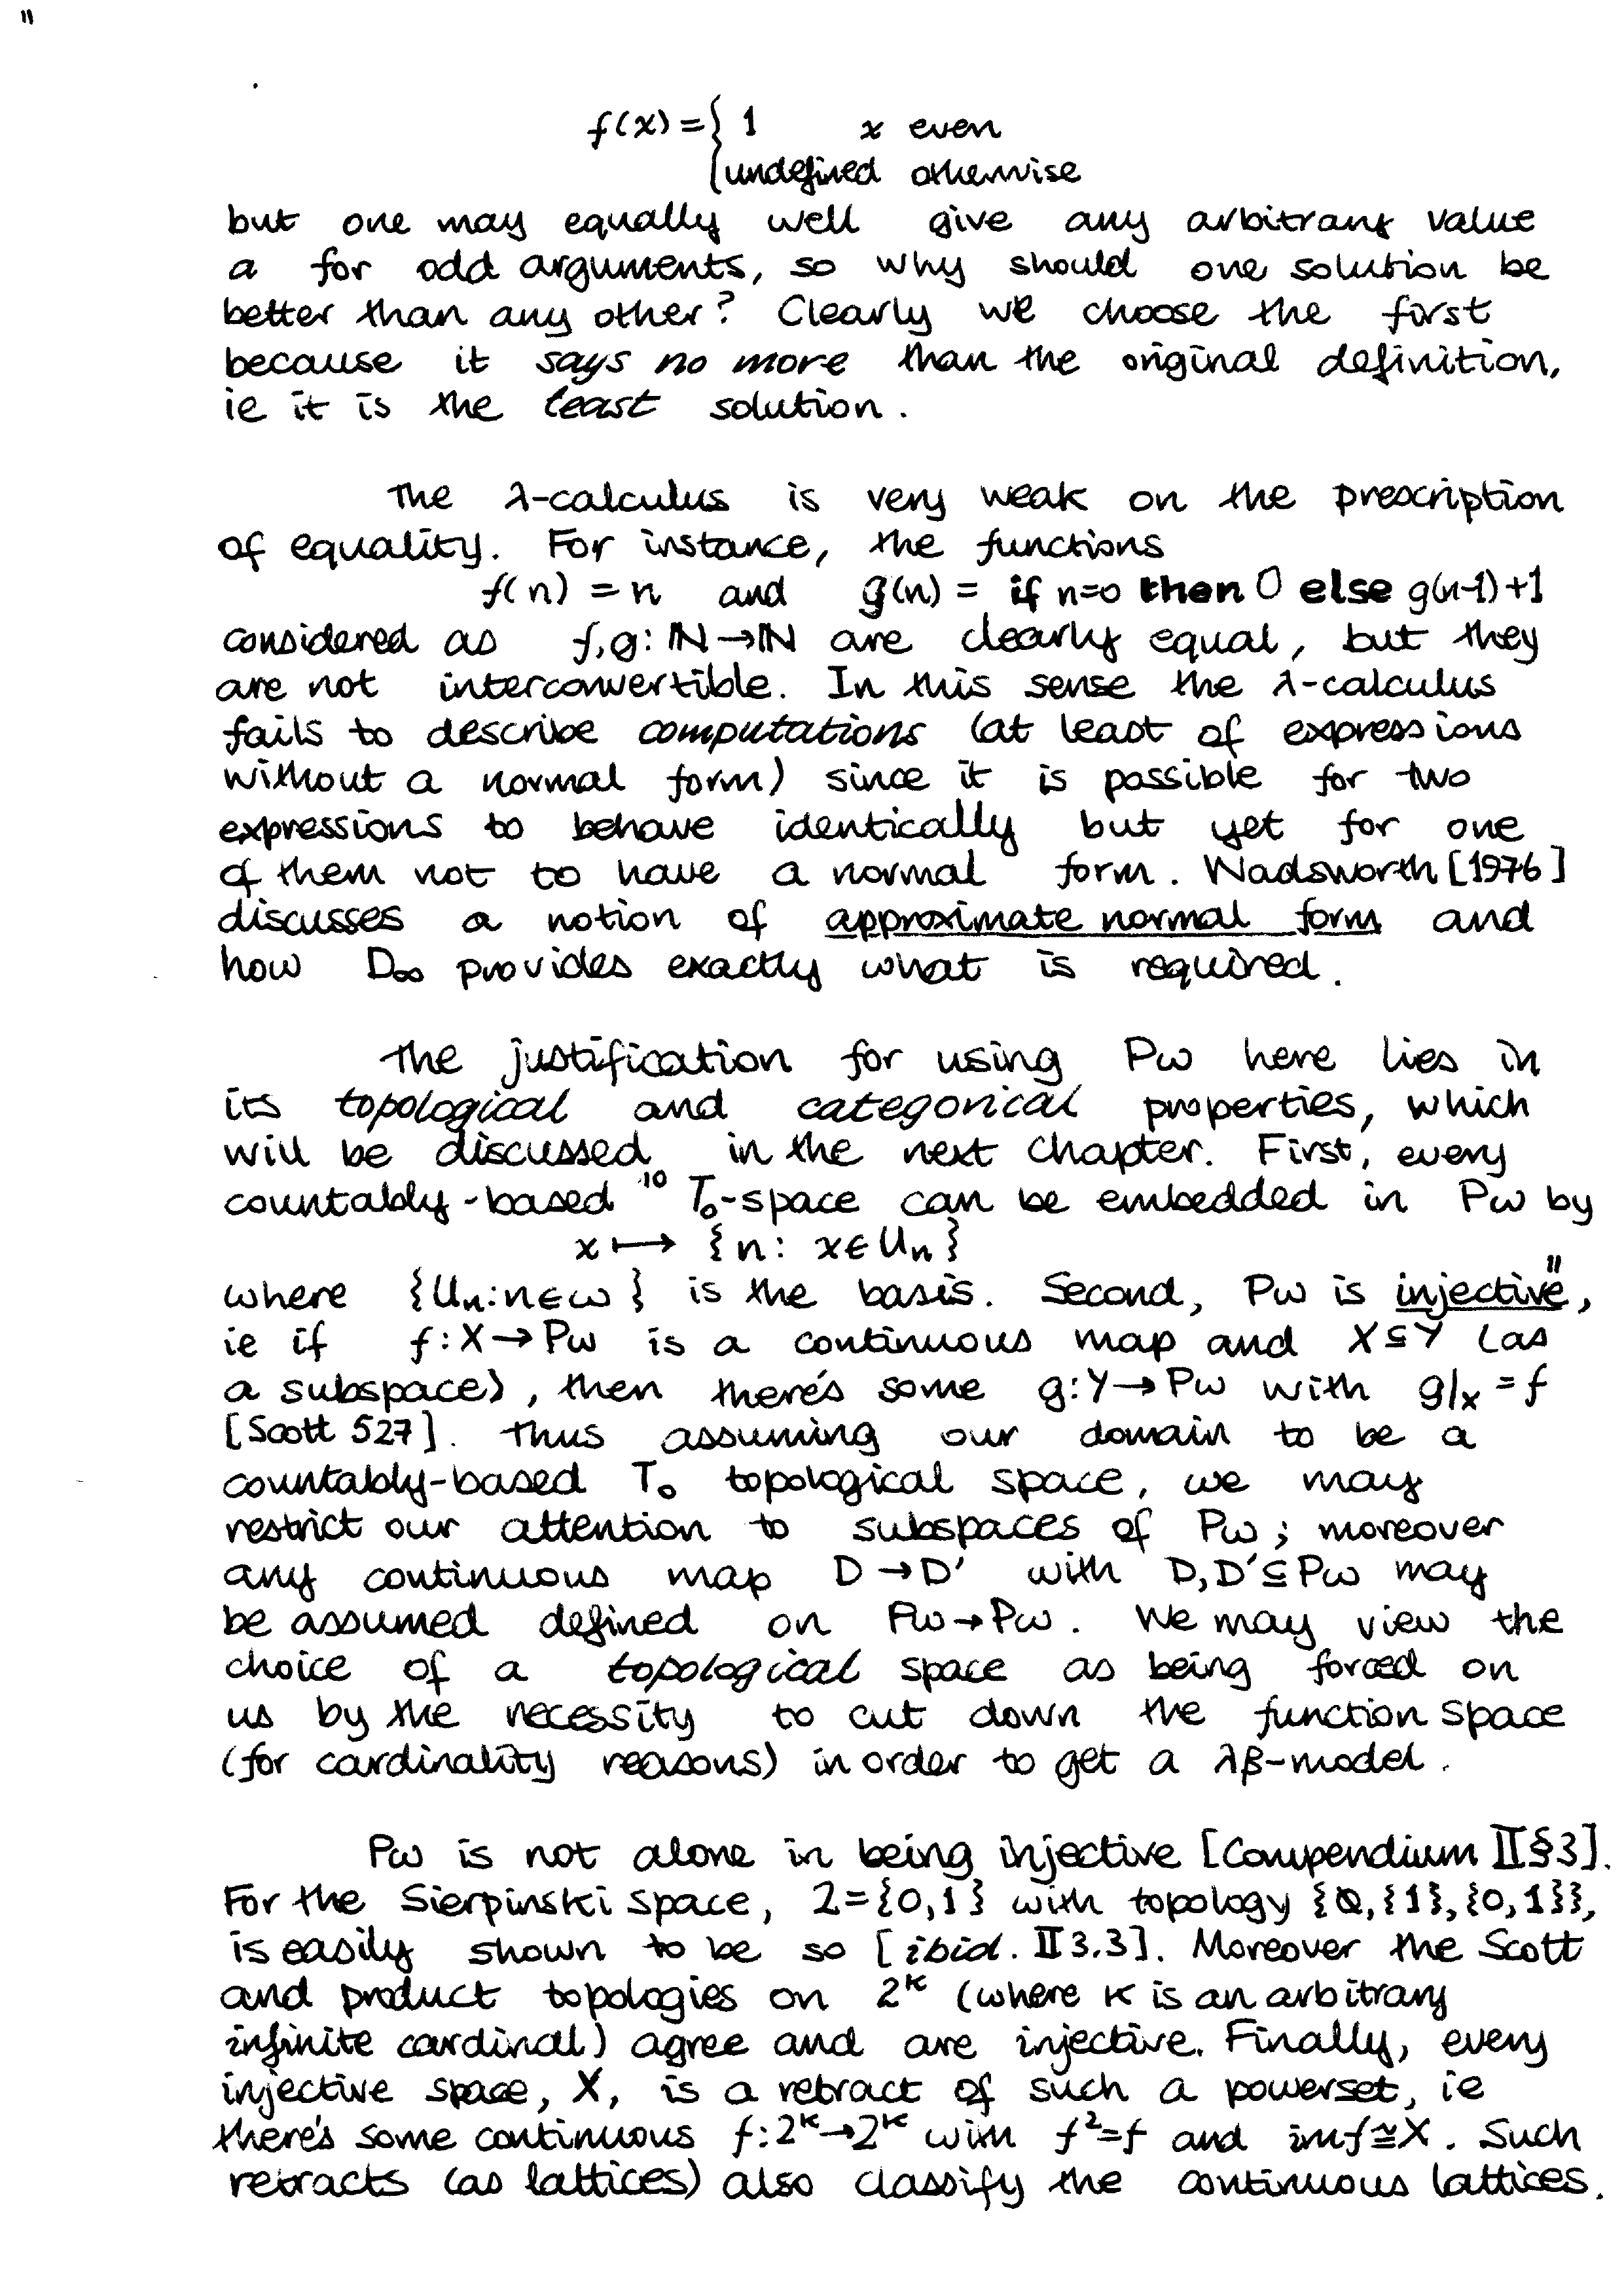 11
f(x) = { 1 x even
{ undefined otherwise
but one may equally well give any arbitrary value
a for odd arguments, so why should one solution be
better than any other? Clearly we choose the first
because it says no more than the original definition,
ie it is the least solution.
The λ-calculus is very weak on the prescription
of equality. For instance, the functions
f(n) = n and g(n) = if n=0 then 0 else g(n-1)+1
considered as f,g: ℕ→ℕ are clearly equal, but they
are not interconvertible. In this sense the λ-calculus
fails to describe computations (at least of expressions
without a normal form) since it is possible for two
expressions to behave identically but yet for one
of them not to have a normal form. Wadsworth [1976]
discusses a notion of approximate normal form and
how D∞ provides exactly what is required.
The justification for using Pω here lies in
its topological and categorical properties, which
will be discussed in the next chapter. First, every
countably-based ¹⁰ T₀-space can be embedded in Pω by
x ⟼ {n: x∈Uₙ}
where {Uₙ:n∈ω} is the basis. Second, Pω is injective¹¹,
ie if f:X→Pω is a continuous map and X⊆Y (as
a subspace), then there's some g:Y→Pω with g|ₓ=f
[Scott 527]. Thus assuming our domain to be a
countably-based T₀ topological space, we may
restrict our attention to subspaces of Pω; moreover
any continuous map D→D' with D,D'⊆Pω may
be assumed defined on Pω→Pω. We may view the
choice of a topological space as being forced on
us by the necessity to cut down the function space
(for cardinality reasons) in order to get a λβ-model.
Pω is not alone in being injective [Compendium II§3].
For the Sierpinski space, 2={0,1} with topology {∅,{1},{0,1}},
is easily shown to be so [ibid. II 3.3]. Moreover the Scott
and product topologies on 2^κ (where κ is an arbitrary
infinite cardinal) agree and are injective. Finally, every
injective space, X, is a retract of such a powerset, ie
there's some continuous f:2^κ→2^κ with f²=f and imf≅X. Such
retracts (as lattices) also classify the continuous lattices.